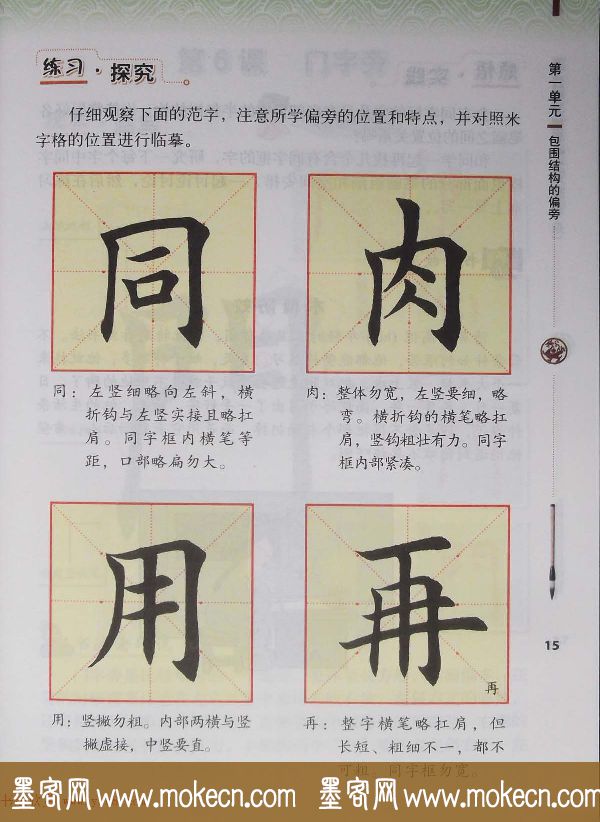 练习·探究
仔细观察下面的范字，注意所学偏旁的位置和特点，并对照米
字格的位置进行临摹。
同
肉
同：左竖细略向左斜，横
折钩与左竖实接且略扛
肩。同字框内横笔等
距，口部略扁勿大。
肉：整体勿宽，左竖要细，略
弯。横折钩的横笔略扛
肩，竖钩粗壮有力。同字
框内部紧凑。
用
再
再
用：竖撇勿粗。内部两横与竖
撇虚接，中竖要直。
再：整字横笔略扛肩，但
长短、粗细不一，都不
可粗。同字框勿宽。
第一单元
包围结构的偏旁
15
墨客网 www.mokecn.com 墨客网 www.mokecn.com